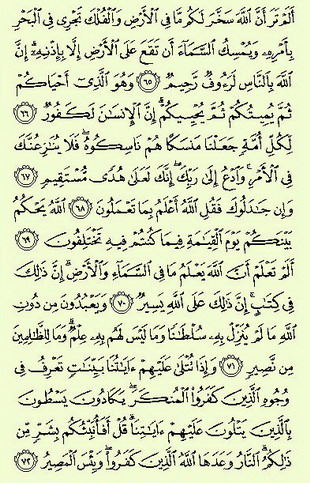 أَلَمْ تَرَ أَنَّ ٱللَّهَ سَخَّرَ لَكُم مَّا فِى ٱلْأَرْضِ وَٱلْفُلْكَ تَجْرِى فِى ٱلْبَحْرِ
بِأَمْرِهِۦ وَيُمْسِكُ ٱلسَّمَآءَ أَن تَقَعَ عَلَى ٱلْأَرْضِ إِلَّا بِإِذْنِهِۦٓ ۗ إِنَّ
ٱللَّهَ بِٱلنَّاسِ لَرَءُوفٌ رَّحِيمٌ ٦٥ وَهُوَ ٱلَّذِىٓ أَحْيَاكُمْ
ثُمَّ يُمِيتُكُمْ ثُمَّ يُحْيِيكُمْ ۗ إِنَّ ٱلْإِنسَـٰنَ لَكَفُورٌ ٦٦
لِّكُلِّ أُمَّةٍ جَعَلْنَا مَنسَكًا هُمْ نَاسِكُوهُ ۖ فَلَا يُنَـٰزِعُنَّكَ
فِى ٱلْأَمْرِ ۚ وَٱدْعُ إِلَىٰ رَبِّكَ ۖ إِنَّكَ لَعَلَىٰ هُدًى مُّسْتَقِيمٍ ٦٧
وَإِن جَـٰدَلُوكَ فَقُلِ ٱللَّهُ أَعْلَمُ بِمَا تَعْمَلُونَ ٦٨ ٱللَّهُ يَحْكُمُ
بَيْنَكُمْ يَوْمَ ٱلْقِيَـٰمَةِ فِيمَا كُنتُمْ فِيهِ تَخْتَلِفُونَ ٦٩
أَلَمْ تَعْلَمْ أَنَّ ٱللَّهَ يَعْلَمُ مَا فِى ٱلسَّمَآءِ وَٱلْأَرْضِ ۗ إِنَّ ذَٰلِكَ
فِى كِتَـٰبٍ ۚ إِنَّ ذَٰلِكَ عَلَى ٱللَّهِ يَسِيرٌ ٧٠ وَيَعْبُدُونَ مِن دُونِ
ٱللَّهِ مَا لَمْ يُنَزِّلْ بِهِۦ سُلْطَـٰنًا وَمَا لَيْسَ لَهُم بِهِۦ عِلْمٌ ۗ وَمَا لِلظَّـٰلِمِينَ
مِن نَّصِيرٍ ٧١ وَإِذَا تُتْلَىٰ عَلَيْهِمْ ءَايَـٰتُنَا بَيِّنَـٰتٍ تَعْرِفُ فِى
وُجُوهِ ٱلَّذِينَ كَفَرُوا۟ ٱلْمُنكَرَ ۖ يَكَادُونَ يَسْطُونَ
بِٱلَّذِينَ يَتْلُونَ عَلَيْهِمْ ءَايَـٰتِنَا ۗ قُلْ أَفَأُنَبِّئُكُم بِشَرٍّ مِّن
ذَٰلِكُمُ ۗ ٱلنَّارُ وَعَدَهَا ٱللَّهُ ٱلَّذِينَ كَفَرُوا۟ ۖ وَبِئْسَ ٱلْمَصِيرُ ٧٢